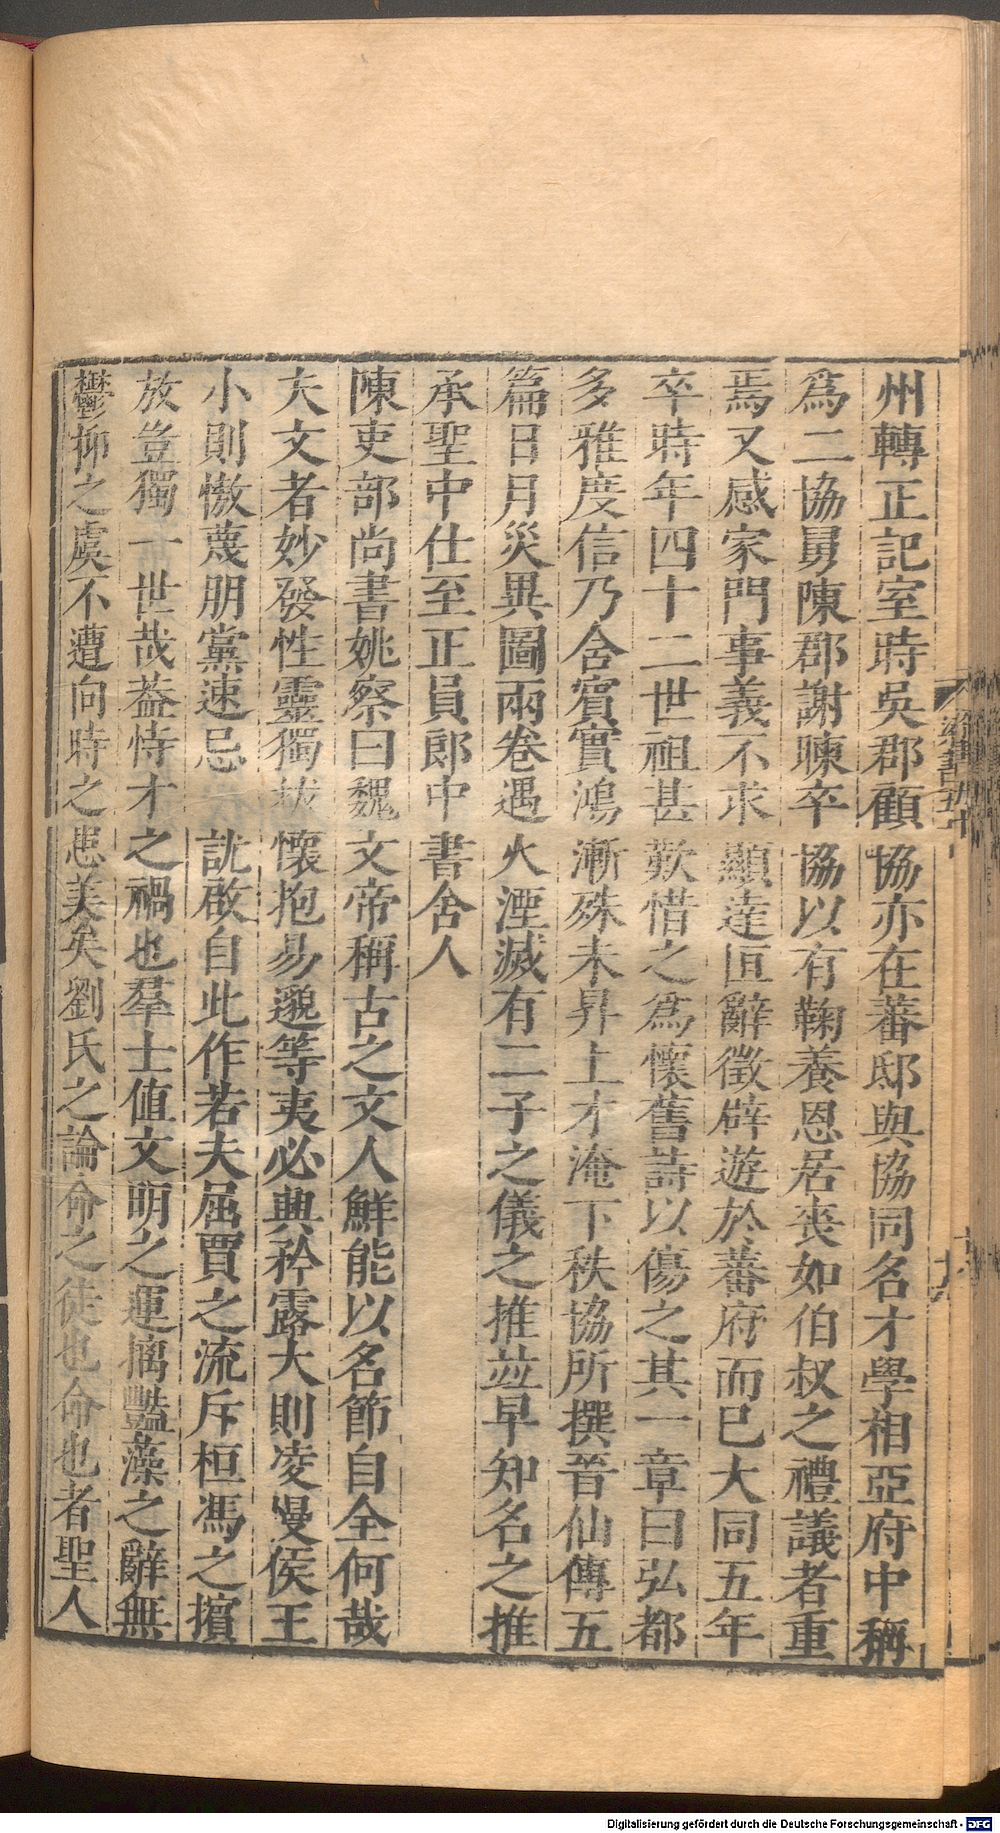 州轉正記室時吳郡顧協亦在蕃邸與協同名才學相亞府中稱
爲二協舅陳郡謝暕卒協以有鞠養恩居喪如伯叔之禮議者重
焉又感家門事義不求顯達恒辭徵辟遊於蕃府而已大同五年
卒時年四十二世祖甚歎惜之爲懷舊詩以傷之其一章曰弘都
多雅度信乃含賓實鴻漸殊未昇上才淹下秩協所撰晉仙傳五
篇日月災異圖兩卷遇火湮滅有二子之儀之推並早知名之推
承聖中仕至正員郎中書舍人
陳吏部尚書姚察曰魏文帝稱古之文人鮮能以名節自全何哉
夫文者妙發性靈獨拔懷抱易邈等夷必興矜露大則凌慢侯王
小則慠蔑朋黨速忌訧啟自此作若夫屈賈之流斥桓馮之擯
放豈獨一世哉蓋恃才之禍也羣士値文明之運摛豔藻之辭無
鬱抑之虞不遭向時之患美矣劉氏之論命之徒也命也者聖人
梁書五十
Digitalisierung gefördert durch die Deutsche Forschungsgemeinschaft - DFG